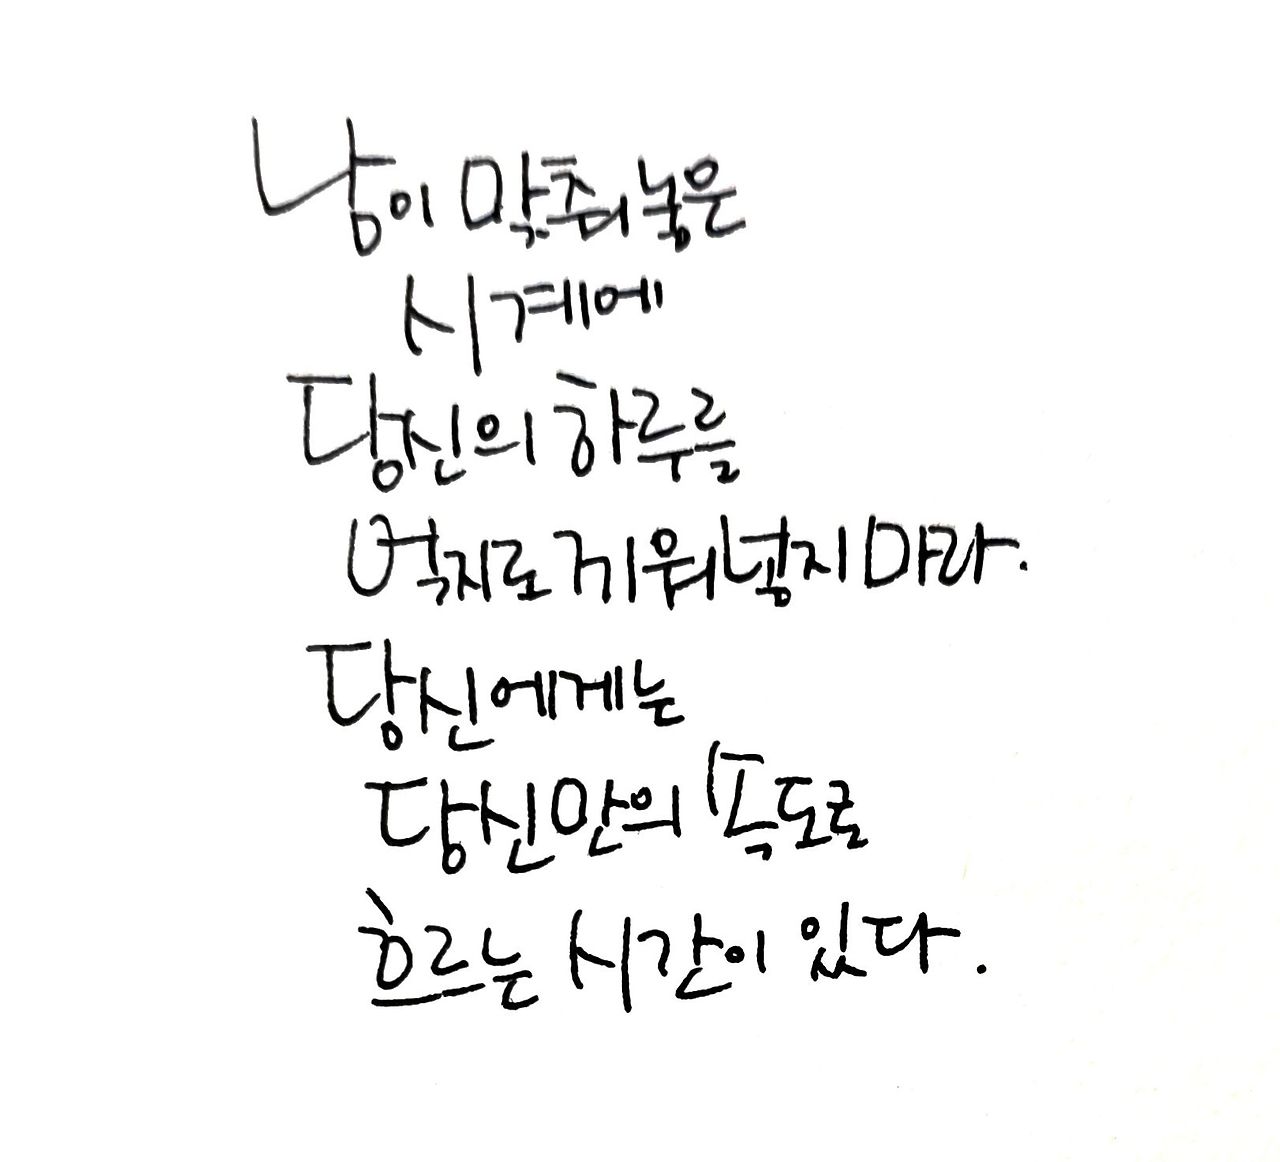 남이 맞춰놓은
시계에
당신의 하루를
억지로 끼워넣지 마라.
당신에게는
당신만의 속도로
흐르는 시간이 있다.